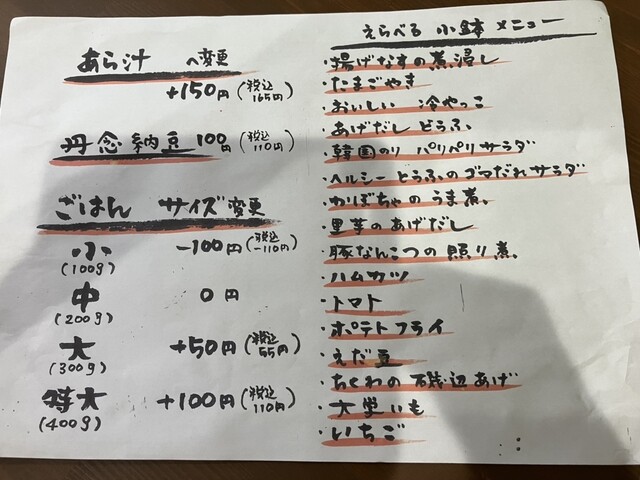 あら汁 へ変更
+150円(税込165円)
丹念納豆 100円(税込110円)
ごはん サイズ変更
小 -100円(税込-110円)
(100g)
中 0円
(200g)
大 +50円(税込55円)
(300g)
特大 +100円(税込110円)
(400g)
えらべる 小鉢 メニュー
・揚げなすの煮浸し
・たまごやき
・おいしい 冷やっこ
・あげだし どうふ
・韓国のり パリパリサラダ
・ヘルシー とうふのゴマだれサラダ
・かぼちゃのうま煮
・里芋のあげだし
・豚なんこつの照り煮
・ハムカツ
・トマト
・ポテトフライ
・えだ豆
・ちくわの磯辺あげ
・大学いも
・いちご